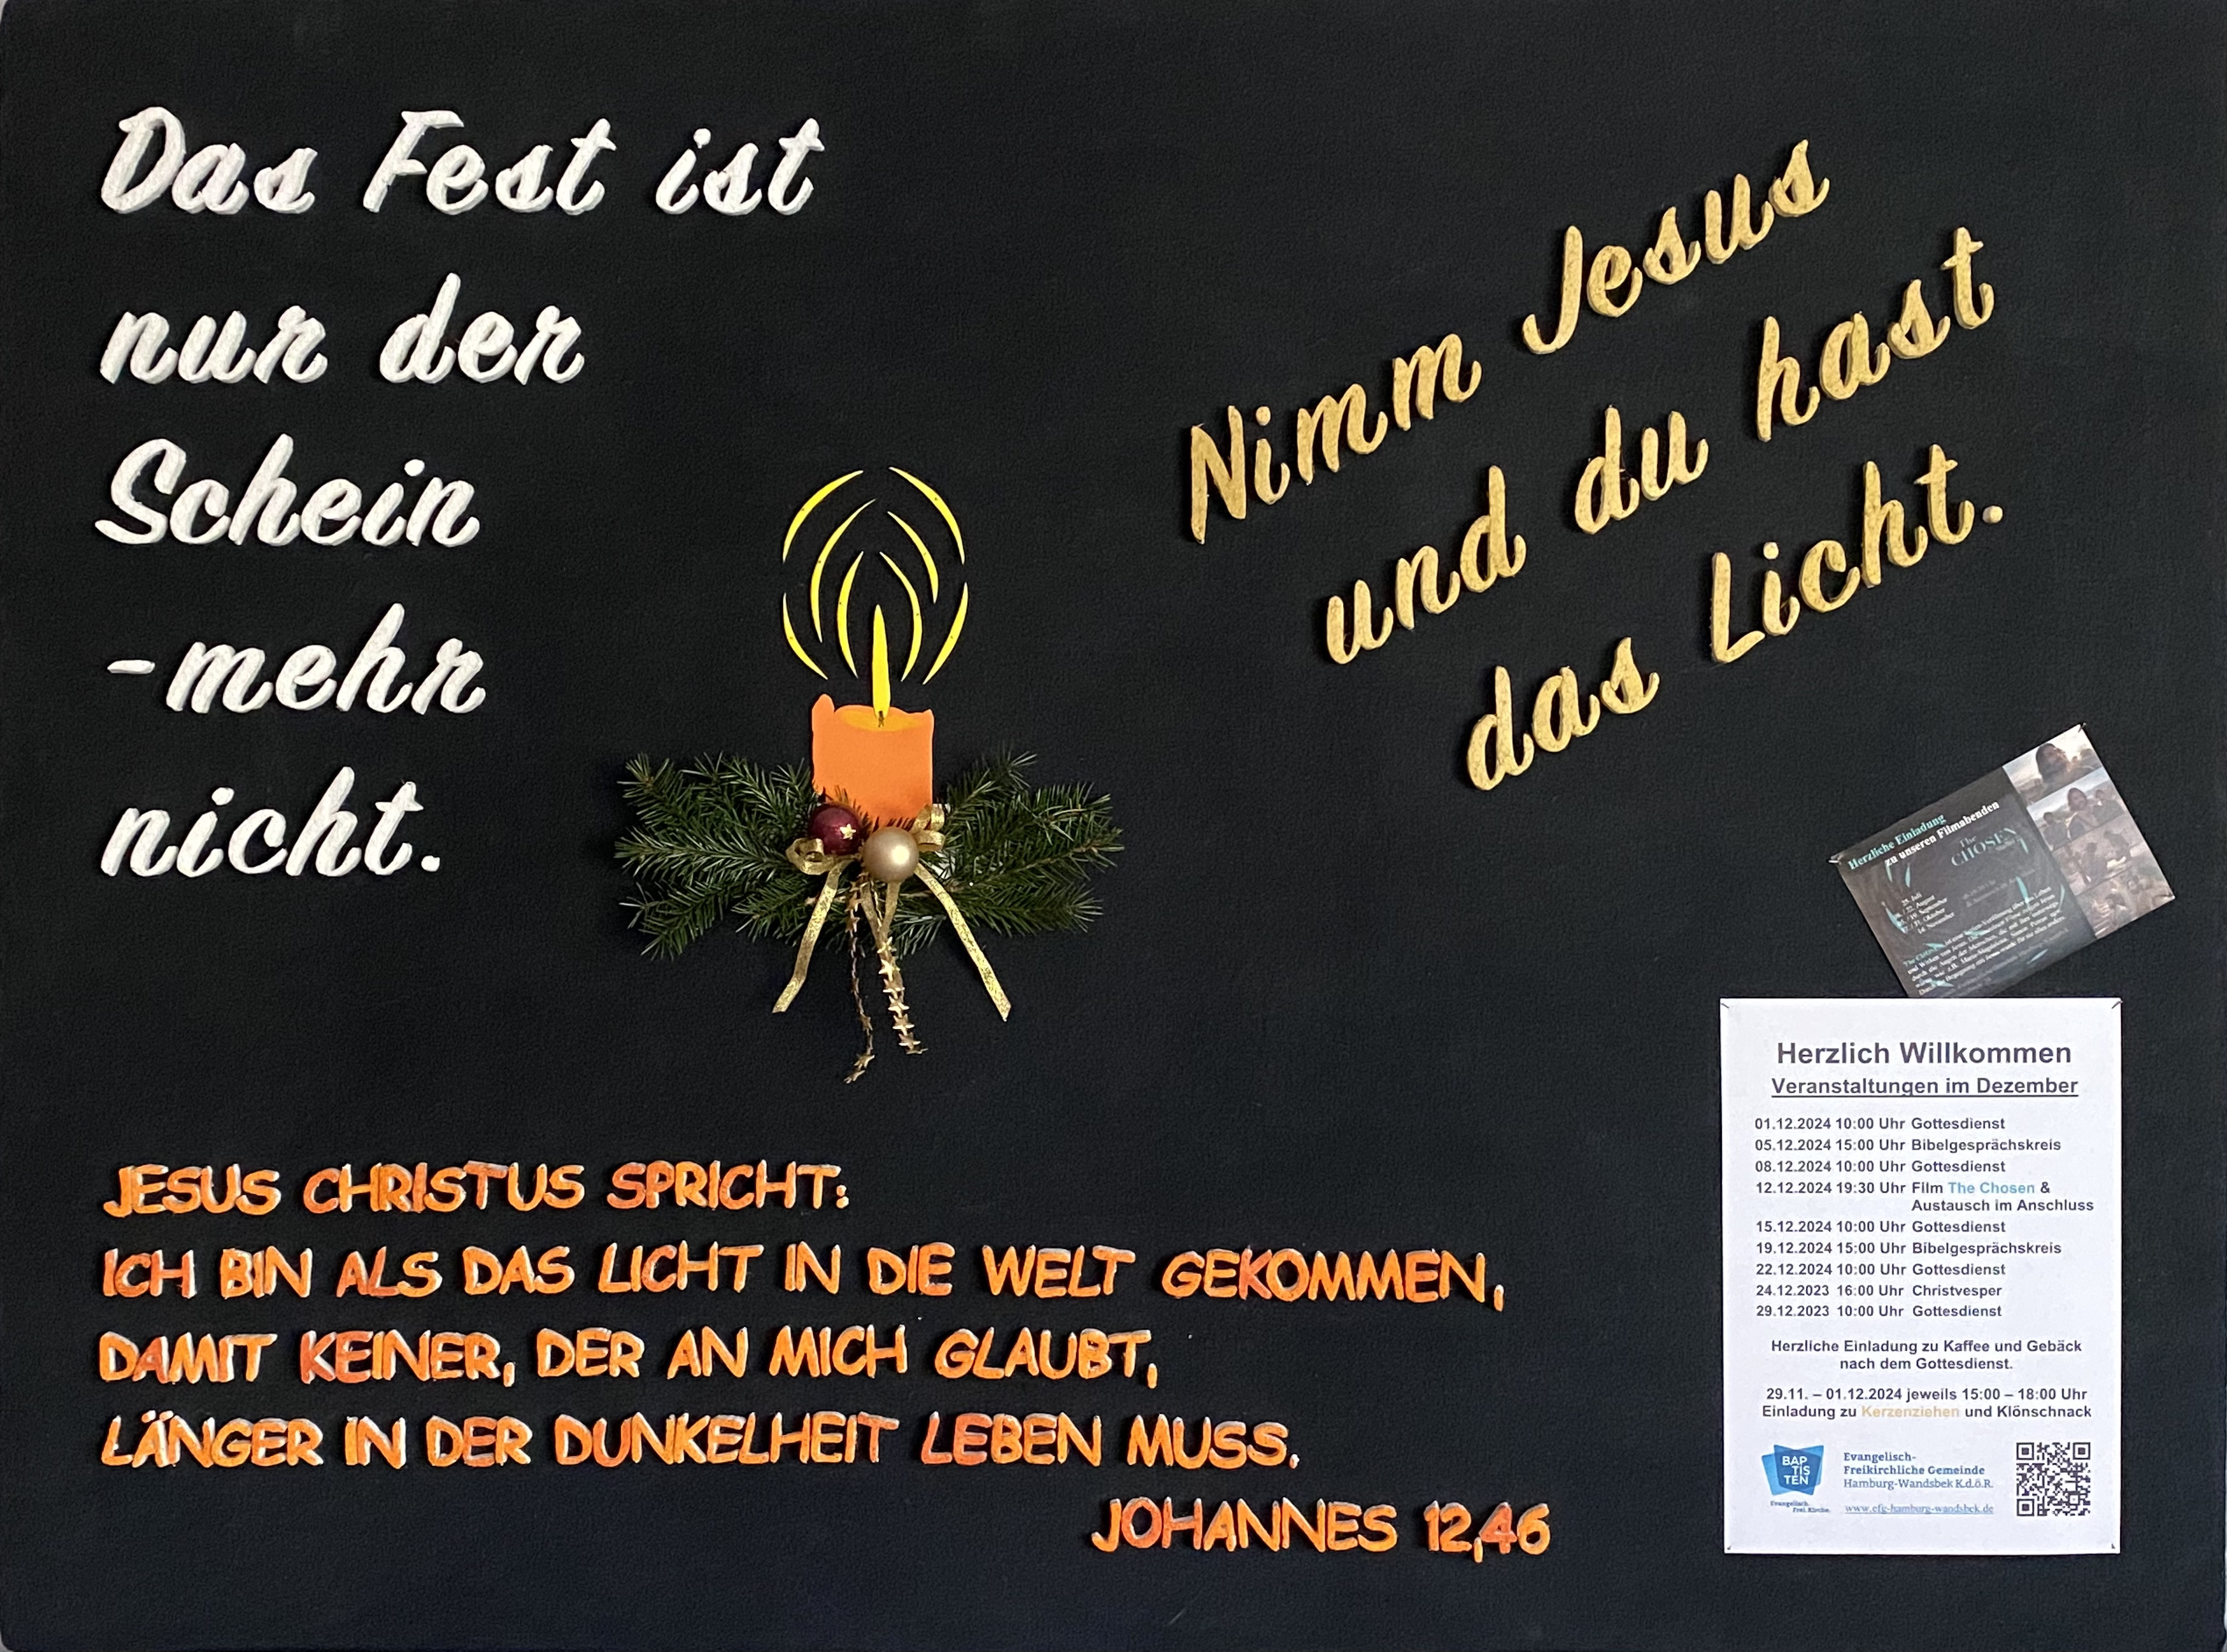 Das Fest ist
nur der
Schein
-mehr
nicht.
Nimm Jesus
und du hast
das Licht.
JESUS CHRISTUS SPRICHT:
ICH BIN ALS DAS LICHT IN DIE WELT GEKOMMEN,
DAMIT KEINER, DER AN MICH GLAUBT,
LÄNGER IN DER DUNKELHEIT LEBEN MUSS.
JOHANNES 12,46
Herzliche Einladung
zu unseren Filmabenden
The
CHOSEN
Herzlich Willkommen
Veranstaltungen im Dezember
01.12.2024 10:00 Uhr Gottesdienst
05.12.2024 15:00 Uhr Bibelgesprächskreis
08.12.2024 10:00 Uhr Gottesdienst
12.12.2024 19:30 Uhr Film The Chosen &
Austausch im Anschluss
15.12.2024 10:00 Uhr Gottesdienst
19.12.2024 15:00 Uhr Bibelgesprächskreis
22.12.2024 10:00 Uhr Gottesdienst
24.12.2023 16:00 Uhr Christvesper
29.12.2023 10:00 Uhr Gottesdienst
Herzliche Einladung zu Kaffee und Gebäck
nach dem Gottesdienst.
29.11. – 01.12.2024 jeweils 15:00 – 18:00 Uhr
Einladung zu Kerzenziehen und Klönschnack
BAP
TIS
TEN
Evangelisch.
Frei. Kirche.
Evangelisch-
Freikirchliche Gemeinde
Hamburg-Wandsbek K.d.ö.R.
www.efg-hamburg-wandsbek.de